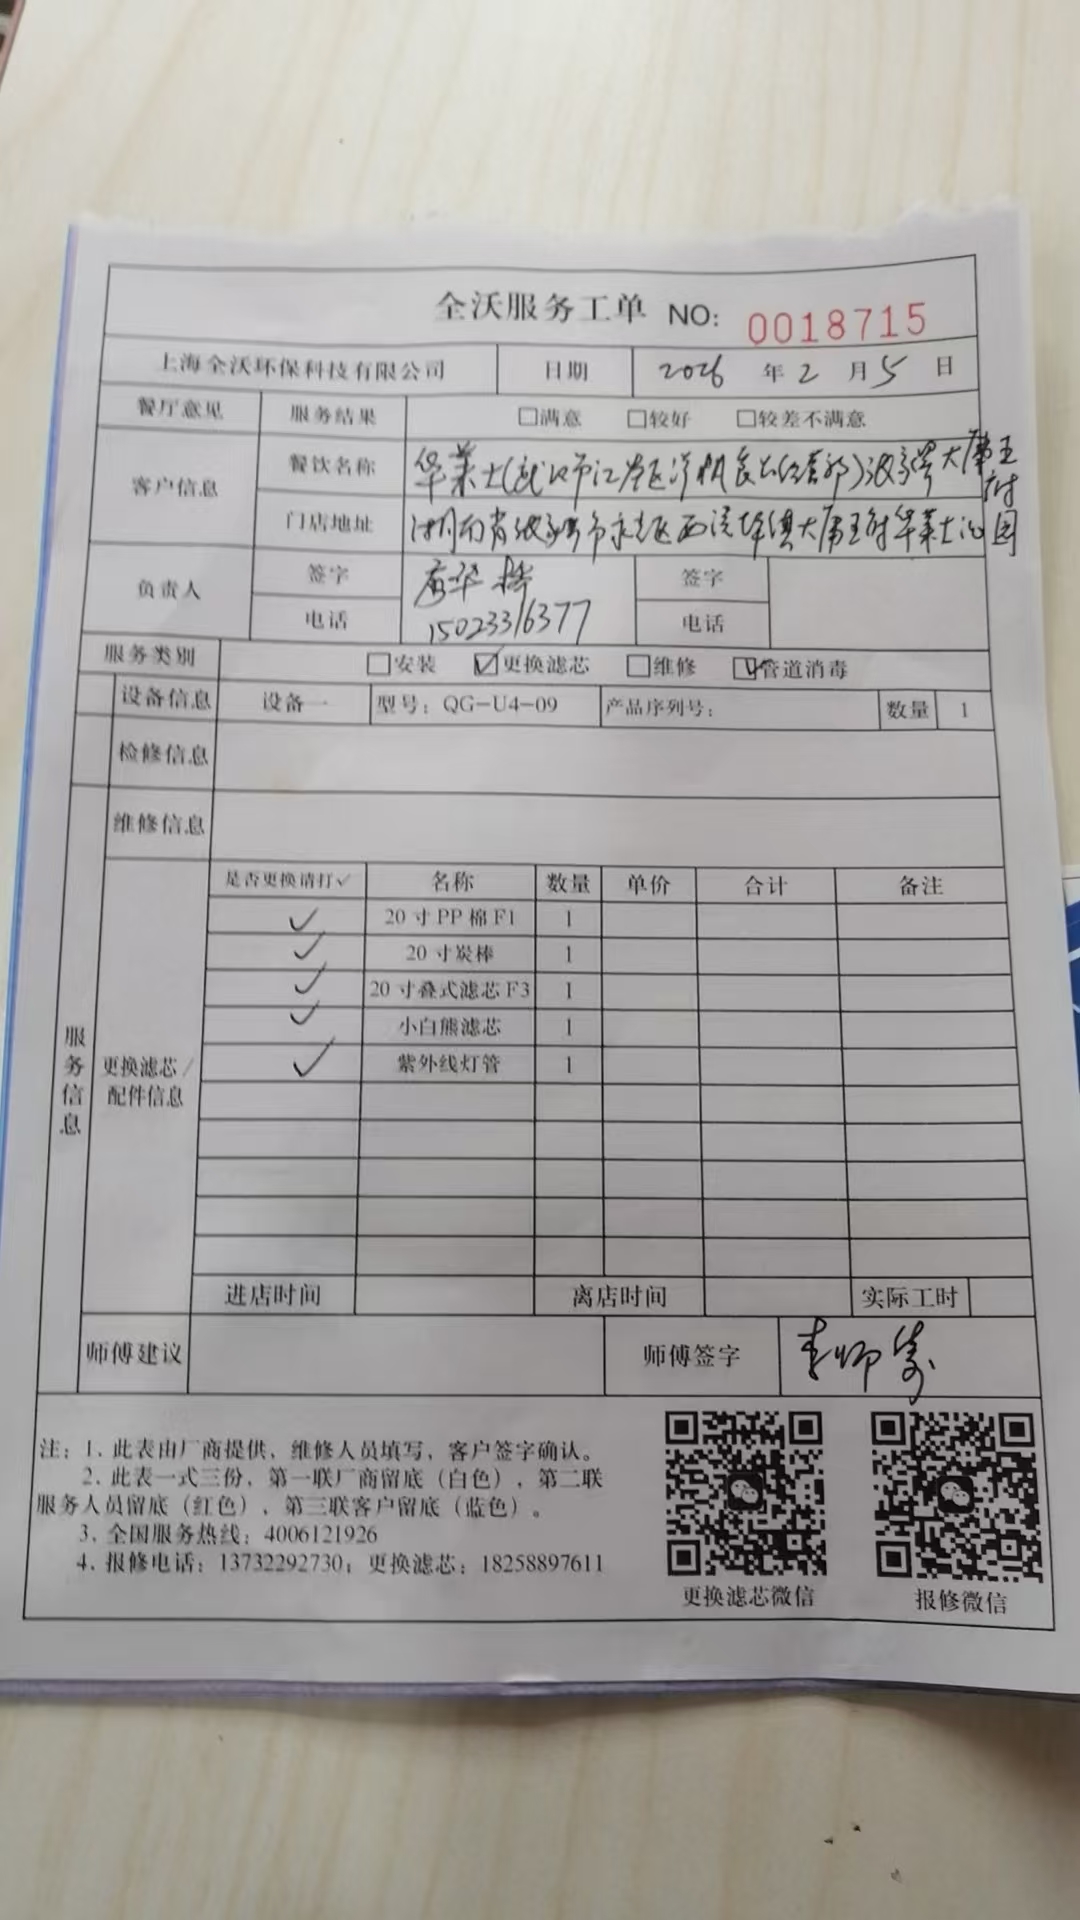 全沃服务工单 NO: 0018715
上海全沃环保科技有限公司 日期 2026 年 2 月 5 日
餐厅意见 服务结果 □满意 □较好 □较差不满意
客户信息 餐饮名称 华莱士(武汉市江
门店地址 湖南省 市 区 大 王府华莱士
负责人 签字 华 签字
电话 15023316377 电话
服务类别 □安装 ☑更换滤芯 □维修 ☑管道消毒
设备信息 设备一 型号: QG-U4-09 产品序列号: 数量 1
检修信息
维修信息
服务信息
更换滤芯/配件信息
是否更换请打✓ 名称 数量 单价 合计 备注
✓ 20寸PP棉F1 1
✓ 20寸炭棒 1
✓ 20寸叠式滤芯F3 1
✓ 小白熊滤芯 1
✓ 紫外线灯管 1
进店时间 离店时间 实际工时
师傅建议 师傅签字 李师傅
注: 1、此表由厂商提供、维修人员填写,客户签字确认。
2、此表一式三份,第一联厂商留底(白色),第二联
服务人员留底(红色),第三联客户留底(蓝色)。
3、全国服务热线: 4006121926
4、报修电话: 13732292730; 更换滤芯: 18258897611
更换滤芯微信 报修微信